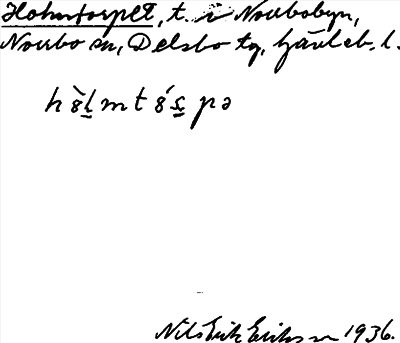 Holmtorpet, t. i Norrbobyn,
Norrbo sn, Delsbo tg, Gävleb. l.
hòḷmtóṣpə
Nils Erik Eriksson 1936.